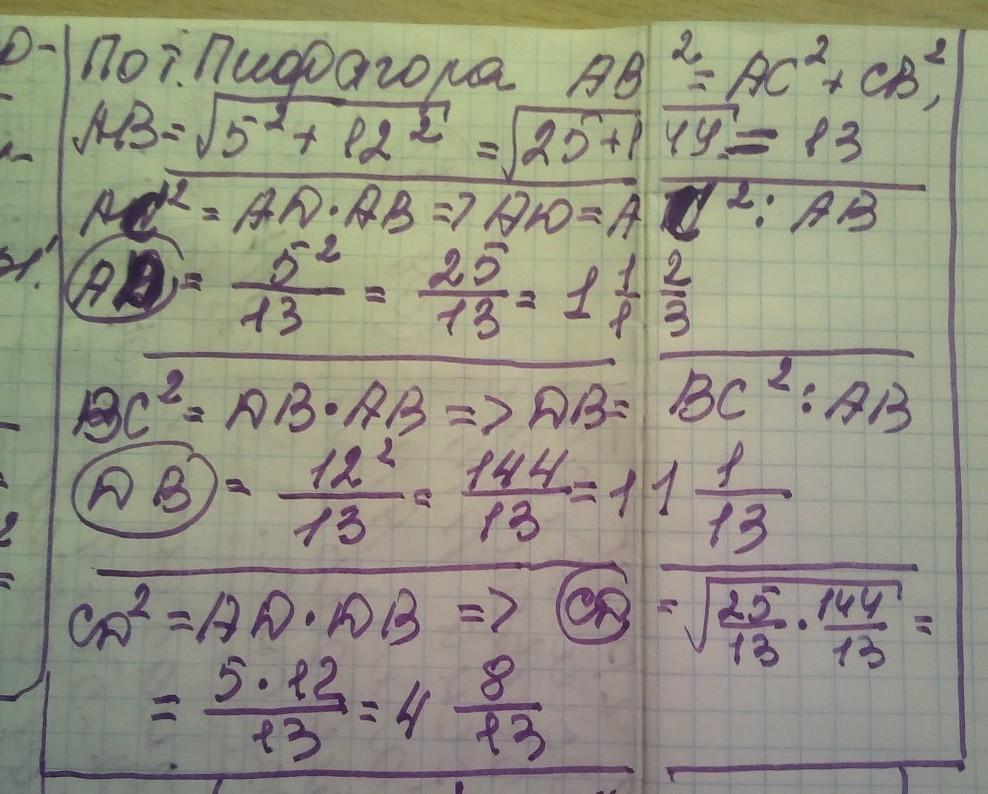 По т. Пифагора AB² = AC² + CB²,
AB = √(5² + 12²) = √(25 + 144) = 13
AC² = AD · AB => AD = AC² : AB
AD = 5²/13 = 25/13 = 1 12/13
BC² = DB · AB => DB = BC² : AB
DB = 12²/13 = 144/13 = 11 1/13
CD² = AD · DB => CD = √(25/13 · 144/13) =
= 5 · 12/13 = 4 8/13